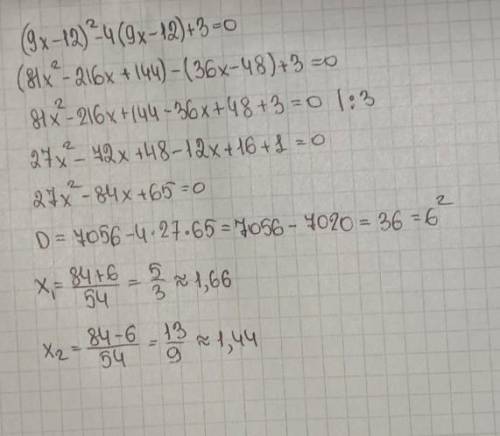 (9x-12)²-4(9x-12)+3=0
(81x²-216x+144)-(36x-48)+3=0
81x²-216x+144-36x+48+3=0 |:3
27x²-72x+48-12x+16+1=0
27x²-84x+65=0
D=7056-4·27·65=7056-7020=36=6²
x₁=84+6/54=5/3≈1,66
x₂=84-6/54=13/9≈1,44